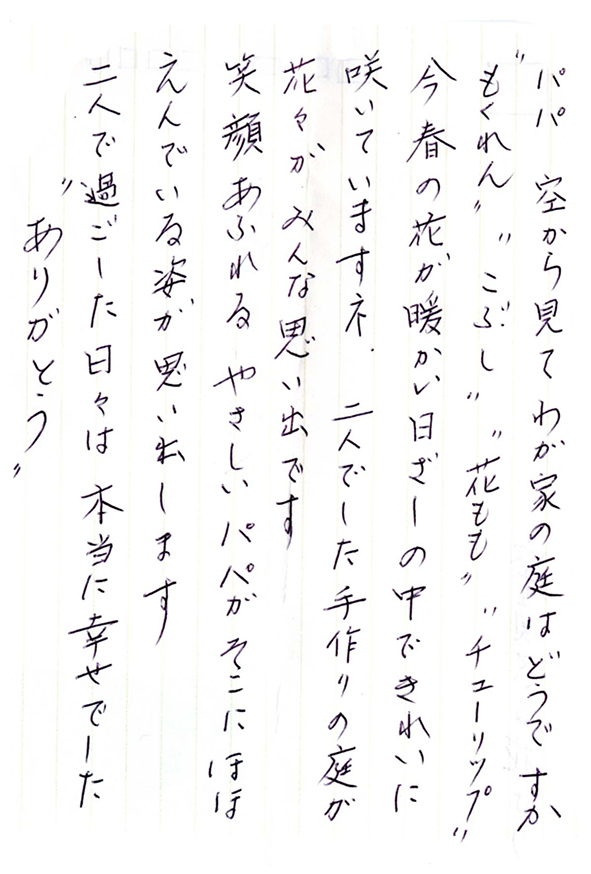 パパ 空から見てわが家の庭はどうですか
"もくれん" "こぶし" "花もも" "チューリップ"
今春の花が暖かい日ざしの中できれいに
咲いていますネ. 二人でした手作りの庭が
花々が みんな思い出です
笑顔あふれる やさしいパパがそこにほほ
えんでいる姿が思い出します
二人で過ごした日々は 本当に幸せでした
"ありがとう"